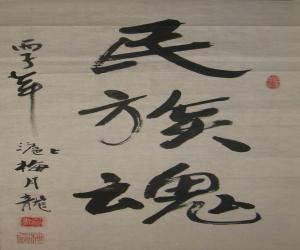 民族魂
丙子年
滬上梅月龍